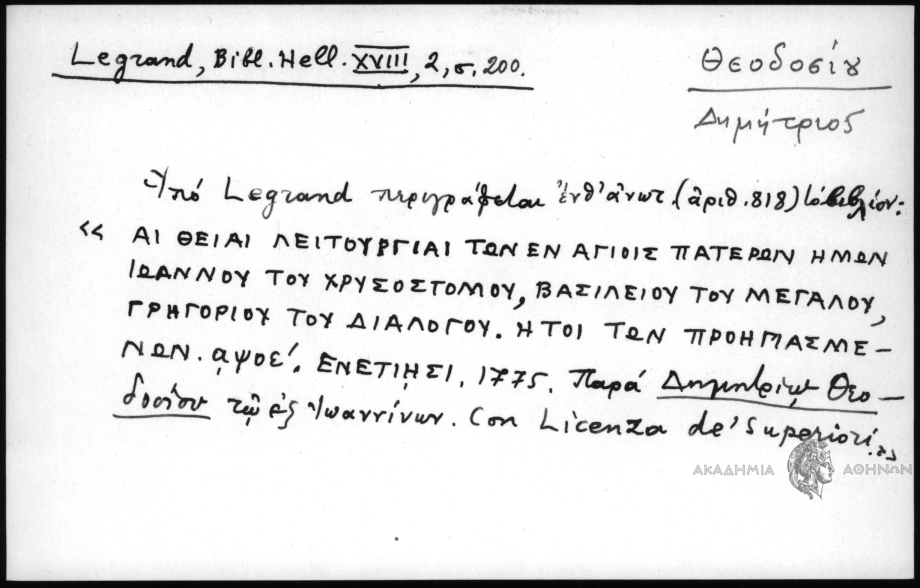 Legrand, Bibl. Hell. XVIII, 2, σ. 200.
Θεοδοσίου
Δημήτριος
Ὑπό Legrand περιγράφεται ἐνθ' ἀνωτ. (ἀριθ. 818) τό βιβλίον:
« ΑΙ ΘΕΙΑΙ ΛΕΙΤΟΥΡΓΙΑΙ ΤΩΝ ΕΝ ΑΓΙΟΙΣ ΠΑΤΕΡΩΝ ΗΜΩΝ
ΙΩΑΝΝΟΥ ΤΟΥ ΧΡΥΣΟΣΤΟΜΟΥ, ΒΑΣΙΛΕΙΟΥ ΤΟΥ ΜΕΓΑΛΟΥ,
ΓΡΗΓΟΡΙΟΥ ΤΟΥ ΔΙΑΛΟΓΟΥ. ΗΤΟΙ ΤΩΝ ΠΡΟΗΓΙΑΣΜΕ-
ΝΩΝ. αψοε'. ΕΝΕΤΙΗΣΙ. 1775. Παρά Δημητρίῳ Θεο-
δοσίου τῷ ἐξ Ἰωαννίνων. Con Licenza de' Superiori.»
ΑΚΑΔΗΜΙΑ ΑΘΗΝΩΝ